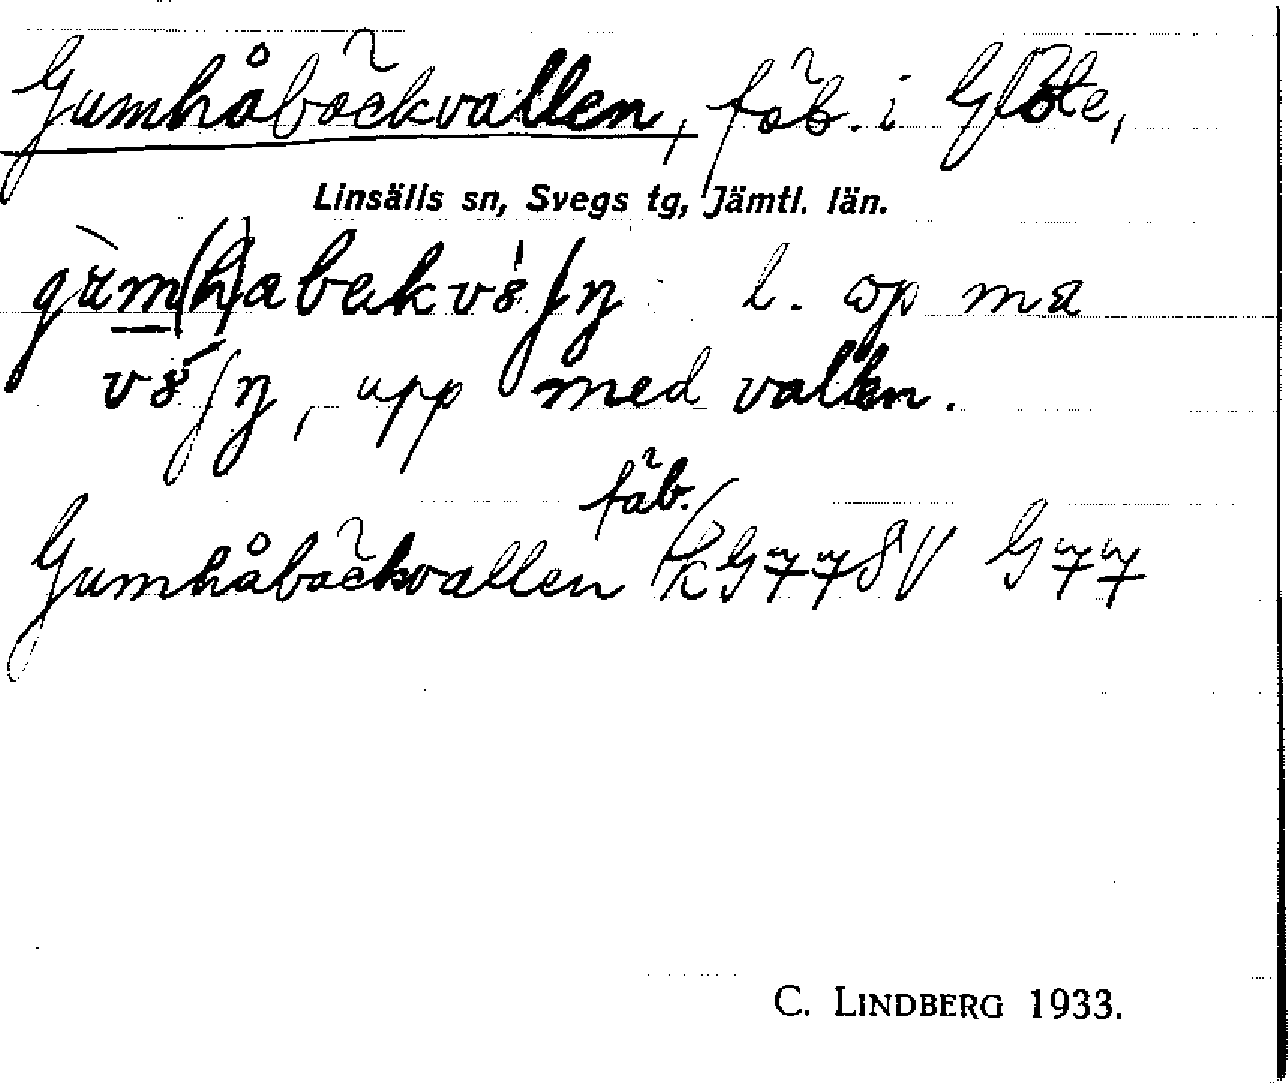 Gumhåbäckvallen, fäb. i Glöte,
Linsälls sn, Svegs tg, Jämtl. län.
l. op ma
upp med vallen.
fäb.
Gumhåbäckvallen G77 SV G77
C. LINDBERG 1933.